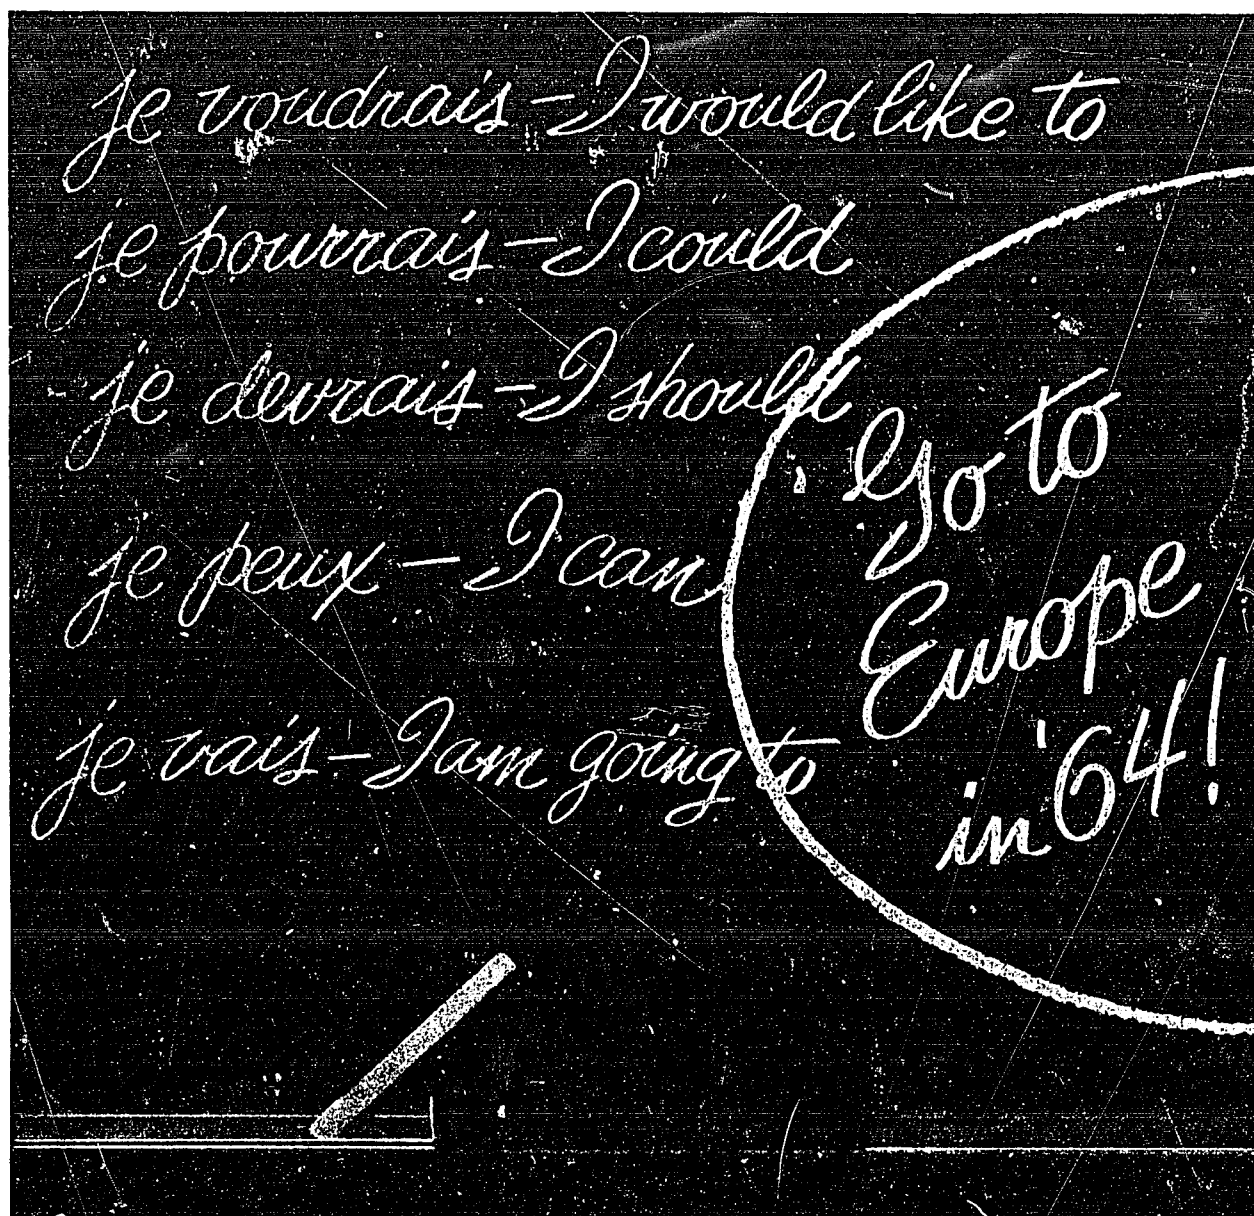 je voudrais – I would like to
je pourrais – I could
je devrais – I should
je peux – I can
je vais – I am going to
Go to
Europe
in '64!